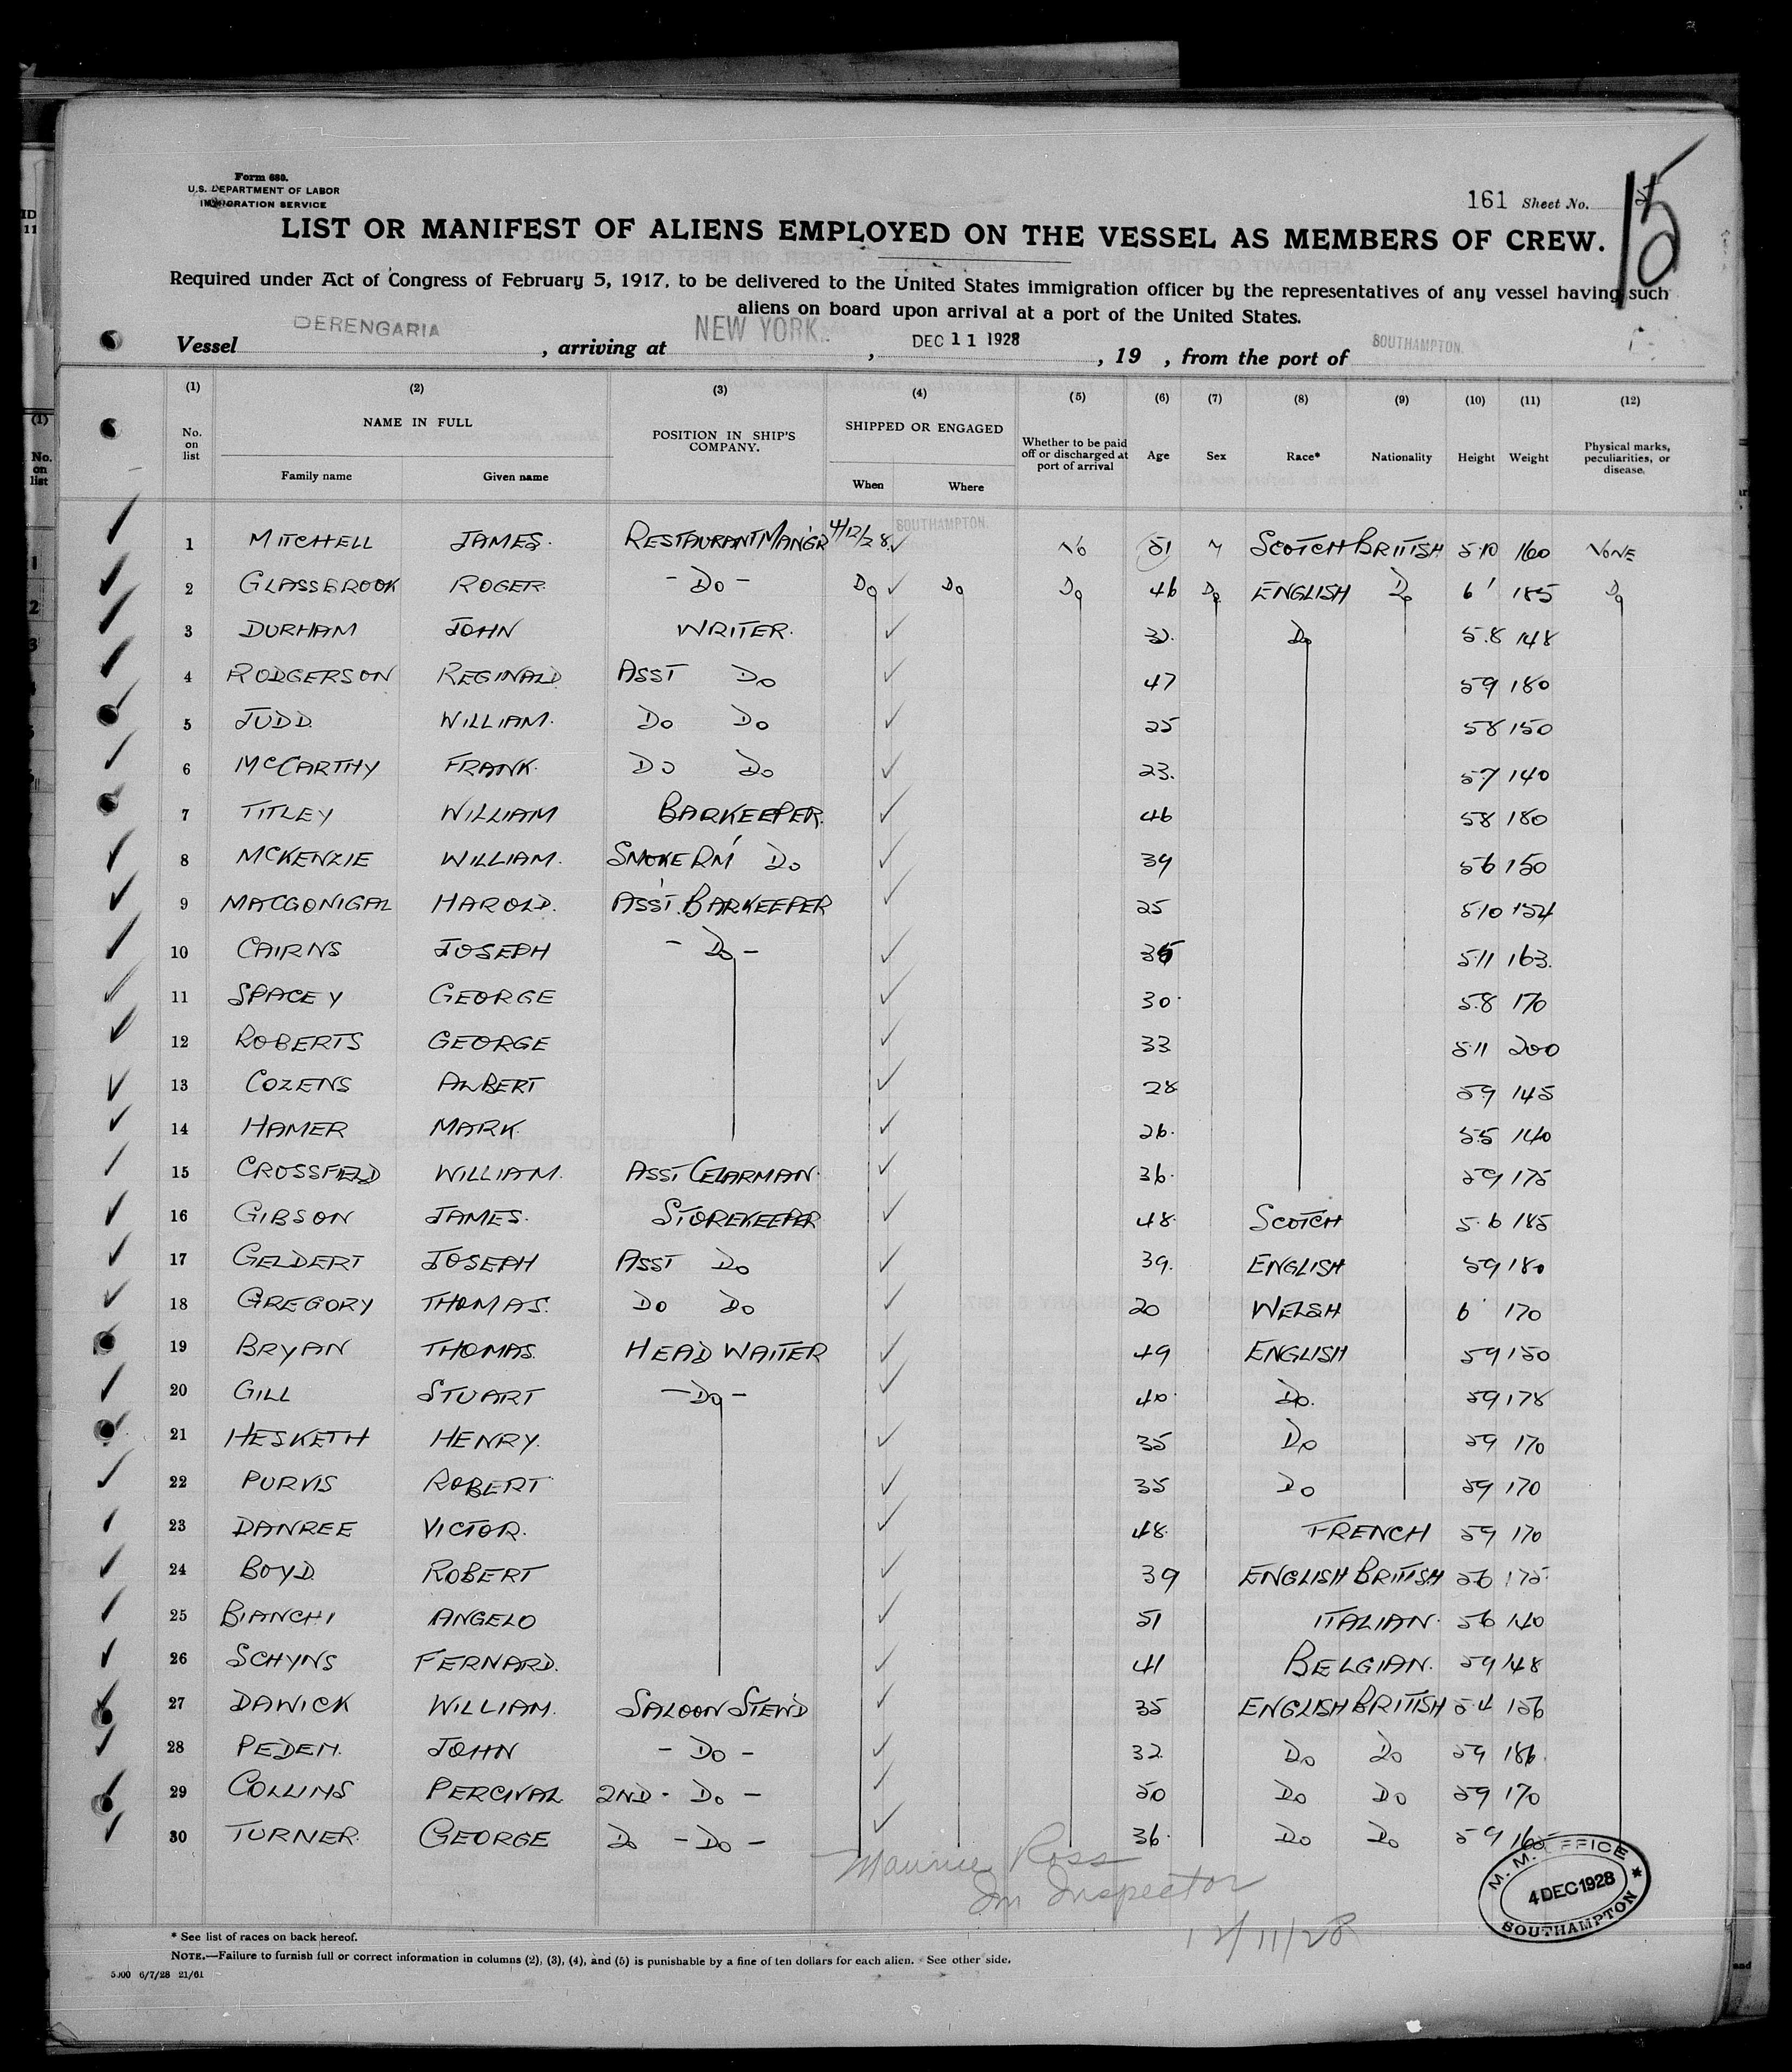 Form 680.
U.S. DEPARTMENT OF LABOR
IMMIGRATION SERVICE
161 Sheet No. 15
LIST OR MANIFEST OF ALIENS EMPLOYED ON THE VESSEL AS MEMBERS OF CREW.
Required under Act of Congress of February 5, 1917, to be delivered to the United States immigration officer by the representatives of any vessel having such
aliens on board upon arrival at a port of the United States.
Vessel BERENGARIA , arriving at NEW YORK. , DEC 11 1928 , 19 , from the port of SOUTHAMPTON.
(1) (2) (3) (4) (5) (6) (7) (8) (9) (10) (11) (12)
No. on list NAME IN FULL Family name Given name POSITION IN SHIP'S COMPANY. SHIPPED OR ENGAGED When Where Whether to be paid off or discharged at port of arrival Age Sex Race* Nationality Height Weight Physical marks, peculiarities, or disease.
1 MITCHELL JAMES. RESTAURANT MAN'GR 4/12/28 SOUTHAMPTON. No 51 M SCOTCH BRITISH 5.10 160 NONE
2 GLASSBROOK ROGER. - Do - Do Do Do 46 Do ENGLISH Do 6' 185 Do
3 DURHAM JOHN WRITER. Do 5.8 148
4 RODGERSON REGINALD ASST Do 47 59 180
5 JUDD. WILLIAM. Do Do 25 58 150
6 McCARTHY FRANK. Do Do 23. 57 140
7 TITLEY WILLIAM BARKEEPER. 46 58 180
8 McKENZIE WILLIAM. SMOKE RM Do 39 56 150
9 MACGONIGAL HAROLD. ASST. BARKEEPER 25 5.10 154
10 CAIRNS JOSEPH - Do - 5.11 163.
11 SPACEY GEORGE 30. 5.8 170
12 ROBERTS GEORGE 33 5.11 200
13 COZENS ALBERT 28 59 145
14 HAMER MARK. 26. 5.5 140
15 CROSSFIELD WILLIAM. ASST CELARMAN. 36. 59 175
16 GIBSON JAMES. STOREKEEPER 48. SCOTCH 5.6 185
17 GELDERT JOSEPH ASST Do 39. ENGLISH 59 180
18 GREGORY THOMAS. Do Do 20 WELSH 6' 170
19 BRYAN THOMAS. HEAD WAITER 49 ENGLISH 59 150
20 GILL STUART - Do - 40. Do. 59 178
21 HESKETH HENRY. 35 Do 59 170
22 PURVIS ROBERT 35 Do 59 170
23 DANREE VICTOR. 48. FRENCH 59 170
24 BOYD. ROBERT 39 ENGLISH BRITISH 56 175
25 BIANCHI ANGELO 51 ITALIAN. 56 140
26 SCHYNS FERNARD. 41 BELGIAN. 59 148
27 DAWICK WILLIAM. SALOON STEW'D 35 ENGLISH BRITISH 5.4 156
28 PEDEN. JOHN - Do - 32. Do Do 59 186.
29 COLLINS PERCIVAL 2ND - Do - 50 Do Do 59 170
30 TURNER. GEORGE Do - Do - 36. Do Do 59
Maurice Ross
Im Inspector
12/11/28
M. M. OFFICE
4 DEC 1928
SOUTHAMPTON
* See list of races on back hereof.
NOTE.—Failure to furnish full or correct information in columns (2), (3), (4), and (5) is punishable by a fine of ten dollars for each alien. See other side.
5000 6/7/28 21/61